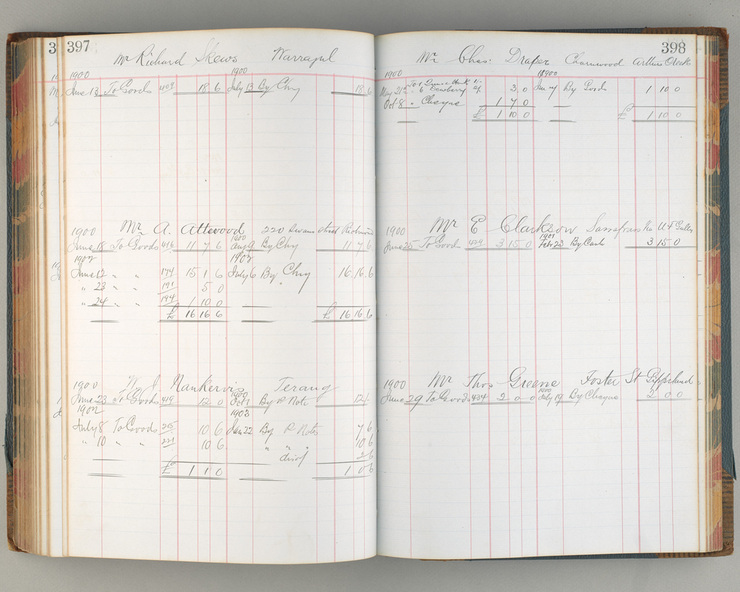 397
Mr Richard Skews Warragul
1900 1900
June 13 To Goods 403 18 6 July 13 By Chq 18 6
1900 Mr A. Attwood 220 Swan Street Richmond
June 18 To Goods 416 11 7 6 Aug 9 By Chq 11 7 6
1902 1902
June 12 " " 174 15 1 6 July 6 By Chq 16 16 6
" 23 " " 191 5 0
" 24 " " 194 1 10 0
£ 16 16 6 £ 16 16 6
1900 Nankervis Terang
June 23 To Goods 424 12 0 Oct 1 By P Note 12
1902 1903
July 8 To Goods 215 10 6 Jan 22 By P Note 7 6
" 10 " " 221 10 6 " " " 10 6
disct 2 6
£ 1 1 0 1 0 6
398
Mr Chas Draper Charnwood
1900 1900
May 21 3 0 By Goods 1 10 0
Oct 8 " Cheque 1 7 0
£ 1 10 0 £ 1 10 0
1900 Mr E Clarkson Sassafras
June 25 To Goods 429 3 15 0 Feb 23 By Cash 3 15 0
1900 Mr Thos Greene Foster St Gippsland
June 29 To Goods 434 2 0 0 July 19 By Cheque 2 0 0